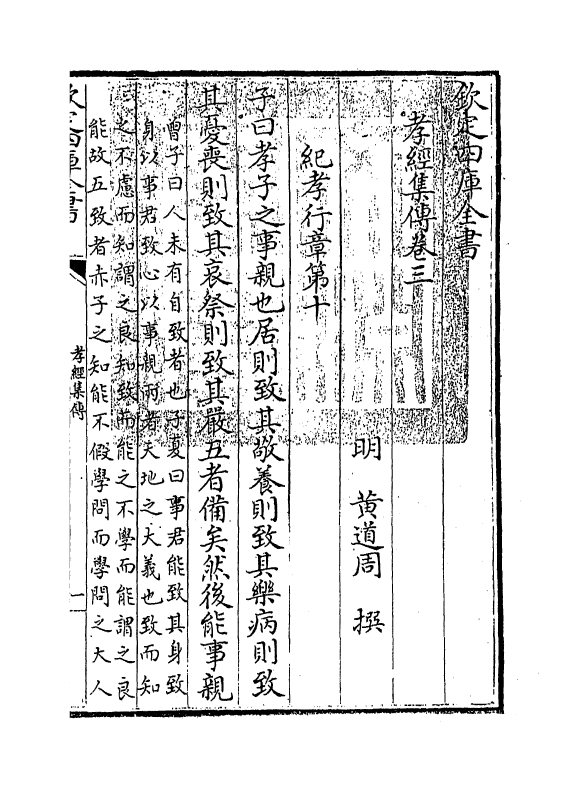 欽定四庫全書
孝經集傳卷三
明 黃道周 撰
紀孝行章第十
子曰孝子之事親也居則致其敬養則致其樂病則致
其憂喪則致其哀祭則致其嚴五者備矣然後能事親
曾子曰人未有自致者也子夏曰事君能致其身致
身以事君致心以事親兩者天地之大義也致而知
之不慮而知謂之良知致而能之不學而能謂之良
能故五致者赤子之知能不假學問而學問之大人
欽定四庫全書
孝經集傳
一